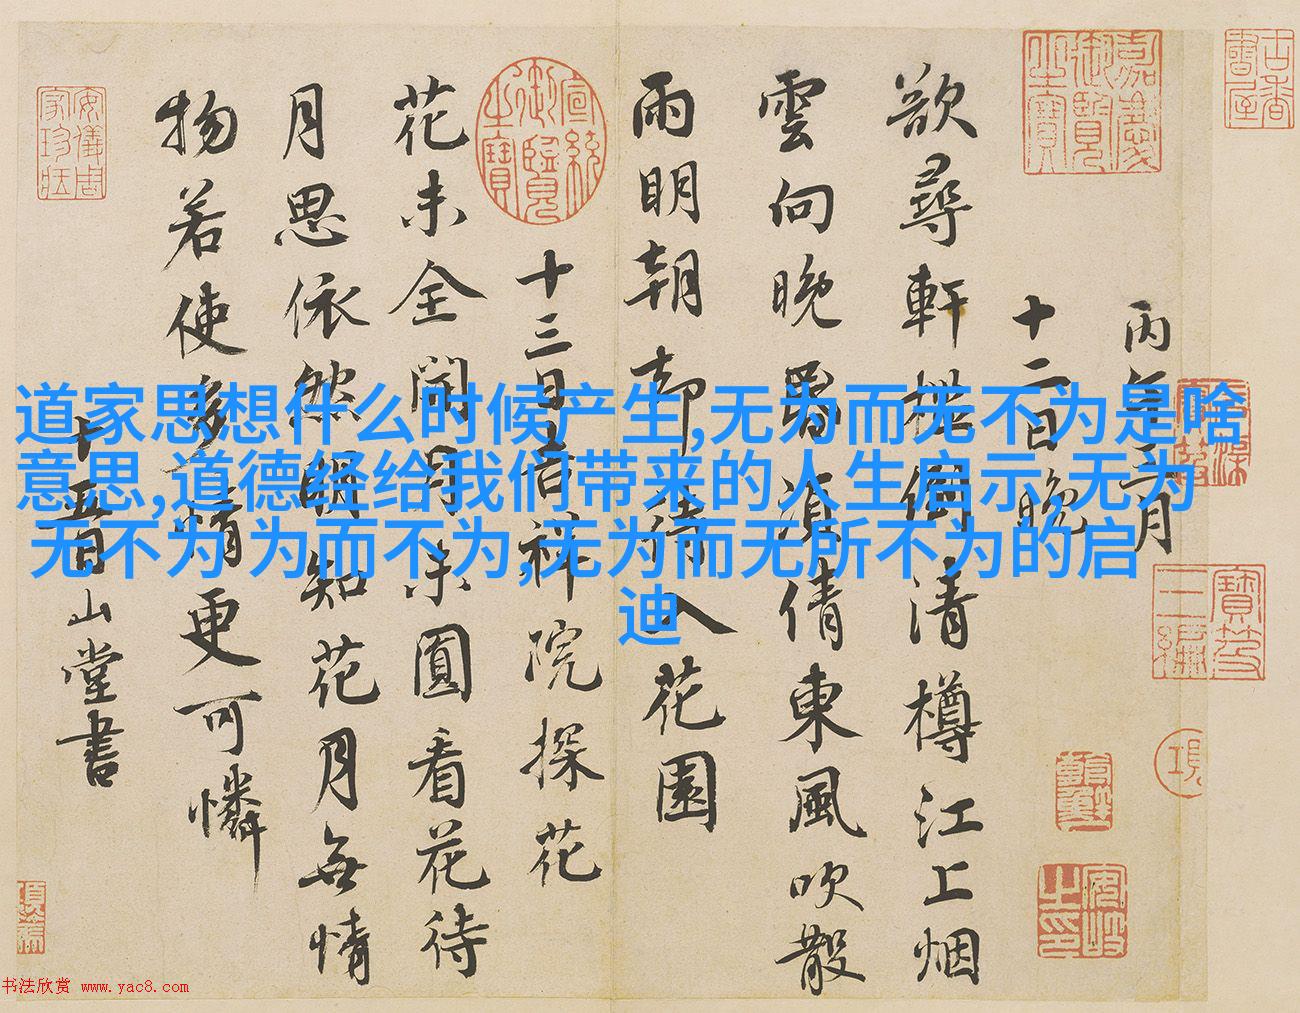 丙午三月
十二日晚
欲尋軒檻倒清樽江上烟
雲向晚昬須倩東風吹散
雨明朝却待入花園
十三日吉祥院探花
花未全開月未圓看花待
月思依然明知花月無情
物若使多情更可憐
十五日山堂書
道家思想什么时候产生,无为而无不为是啥
意思,道德经给我们带来的人生启示,无为
无不为 为而不为,无为而无所不为的启
迪
书法欣赏 www.yac8.com